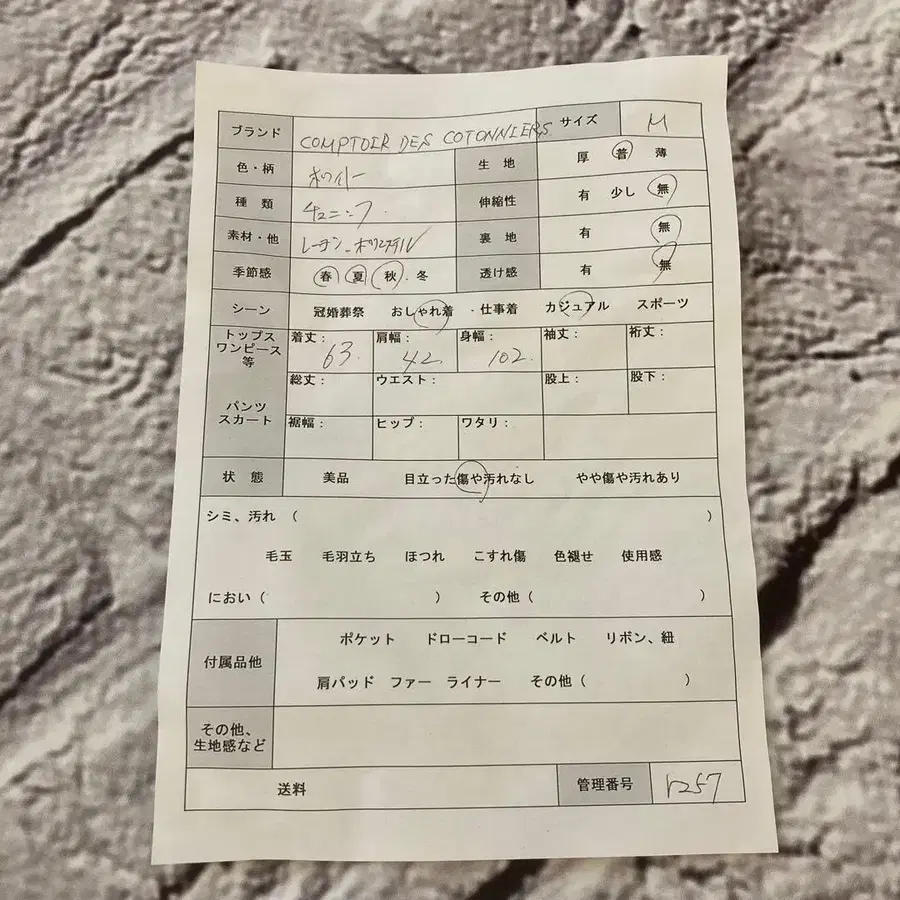 ブランド COMPTOIR DES COTONNIERS サイズ M
色・柄 ホワイト 生地 厚 普 薄
種類 チュニック 伸縮性 有 少し 無
素材・他 レーヨン、ポリエステル 裏地 有 無
季節感 春 夏 秋 . 冬 透け感 有 無
シーン 冠婚葬祭 おしゃれ着 ・仕事着 カジュアル スポーツ
トップス ワンピース 等 着丈： 63. 肩幅： 42. 身幅： 102. 袖丈： 裄丈：
パンツ スカート 総丈： ウエスト： 股上： 股下：
裾幅： ヒップ： ワタリ：
状態 美品 目立った傷や汚れなし やや傷や汚れあり
シミ、汚れ （ ）
毛玉 毛羽立ち ほつれ こすれ傷 色褪せ 使用感
におい（ ） その他（ ）
付属品他 ポケット ドローコード ベルト リボン、紐
肩パッド ファー ライナー その他（ ）
その他、
生地感など
送料 管理番号 r257